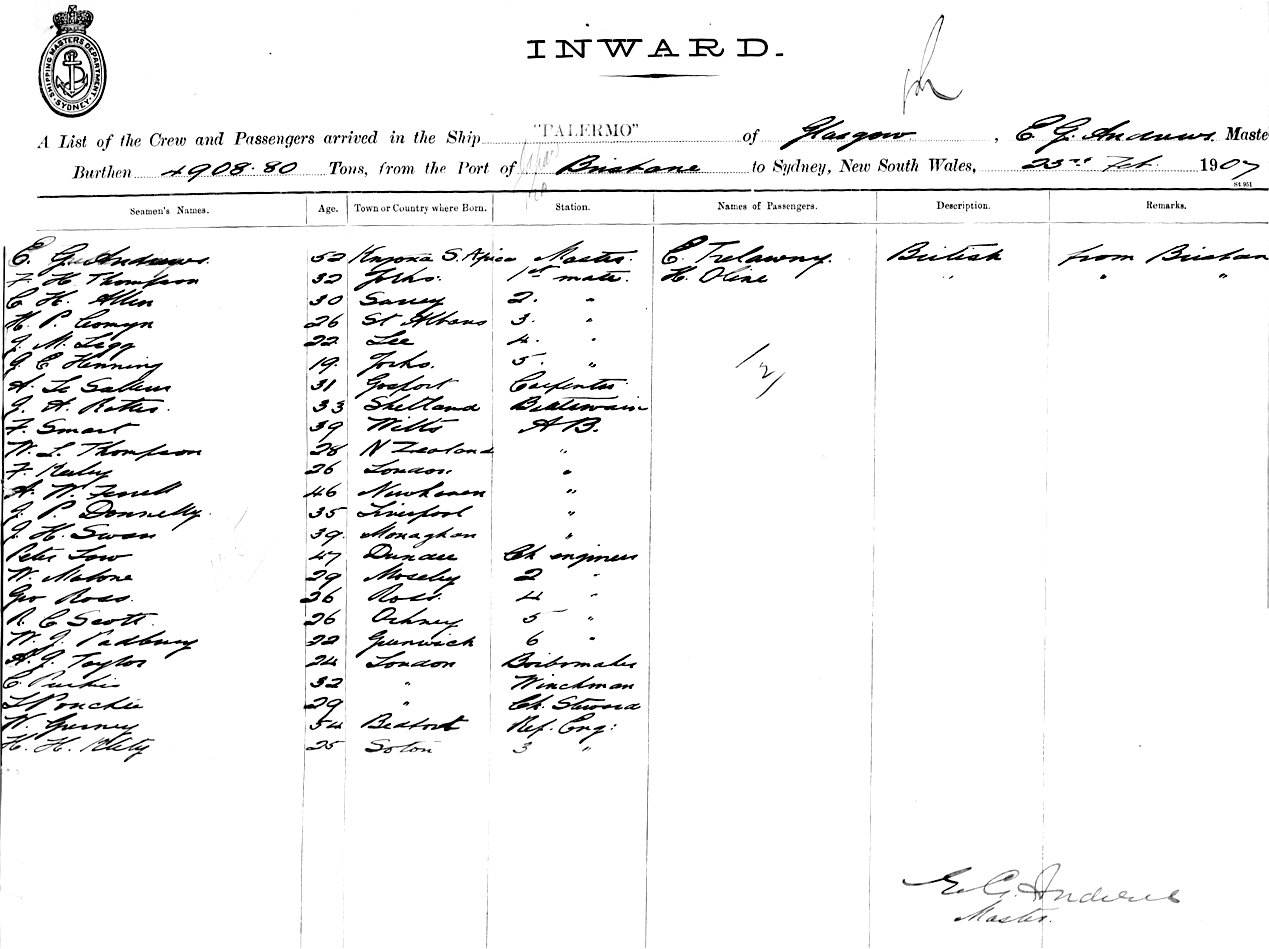 SHIPPING MASTERS DEPARTMENT. SYDNEY
INWARD.
A List of the Crew and Passengers arrived in the Ship "PALERMO" of Glasgow, E. G. Andrews Maste
Burthen 4908.80 Tons, from the Port of Brisbane to Sydney, New South Wales, 23rd Feb 1907
St 951
Seamen's Names. Age. Town or Country where Born. Station. Names of Passengers. Description. Remarks.
E. G. Andrews. 52 S. Africa Master. C. Trelawny. British from Brisban
F. H. Thompson 32 Yorks. 1st mate. H. Oline " " "
C. H. Allen 30 Surrey 2. "
H. P. Comyn 26 St Albans 3. "
J. M. Legg 22 Lee 4. "
G. E. Henning 19. Yorks. 5. "
31 Gosport Carpenter
33 Shetland Boatswain
F. Smart 39 Wilts A B.
W. L. Thompson 28 N Zealand "
F. 26 London "
A. W. 46 Newhaven "
J. P. Donnelly. 35 Liverpool "
J. H. Swan 39. Monaghan "
Peter Low 47 Dundee Ch engineer
W. Malone 29 Moseley 2 "
Geo Ross. 26 Ross. 4 "
R. C Scott. 26 Orkney 5 "
W. J. Padbury 22 Greenwich 6 "
A. J. Taylor 24 London Boilermaker
C. Purkis 32 " Winchman
29 " Ch. Steward
W. Gurney 54 Bedford Ref. Eng:
H. H. 25 Soton 3 "
E. G. Andrews
Master.